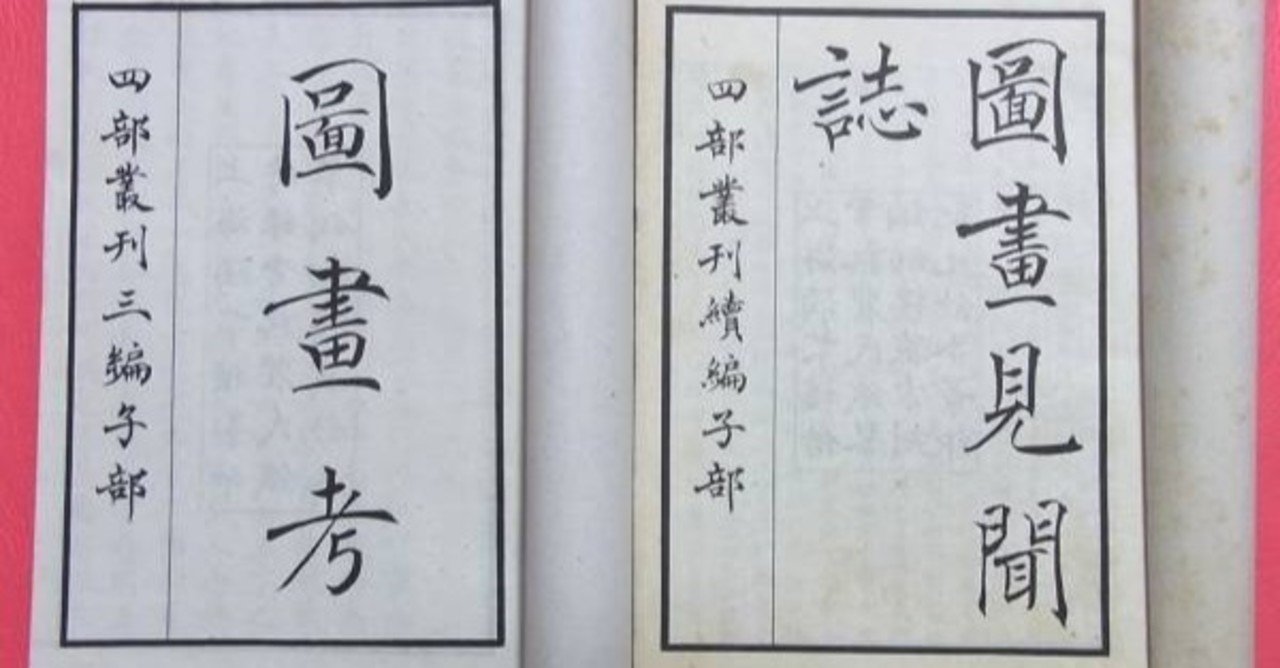 圖畫見聞
誌
四部叢刊續編子部
圖畫考
四部叢刊三編子部